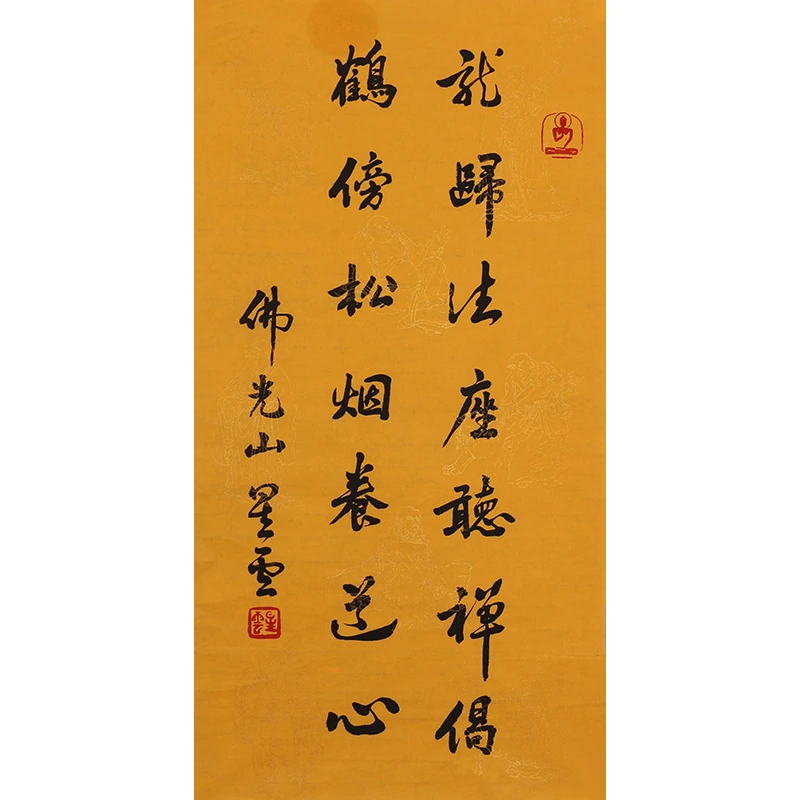 龙歸法座聽禅偈
鶴傍松烟養道心
佛光山星雲
星雲